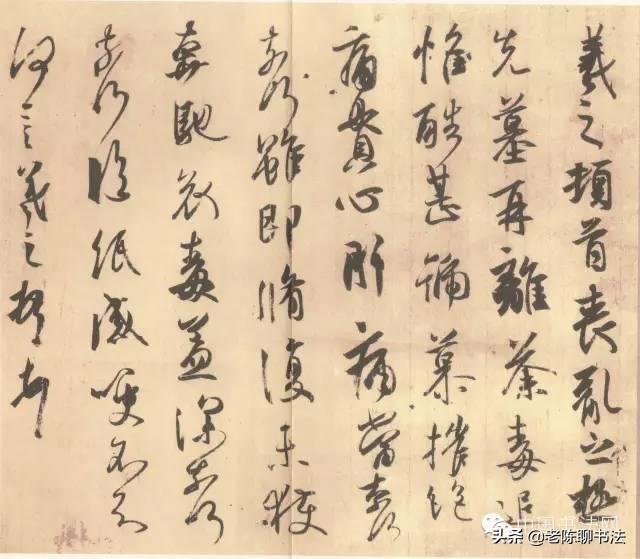 羲之頓首喪亂之極
先墓再離荼毒追
惟酷甚號慕摧絕
痛貫心肝痛當奈何
奈何雖即脩復未獲
奔馳哀毒益深奈何
奈何臨紙感哽不知
何言羲之頓首頓首
头条 @老陈聊书法